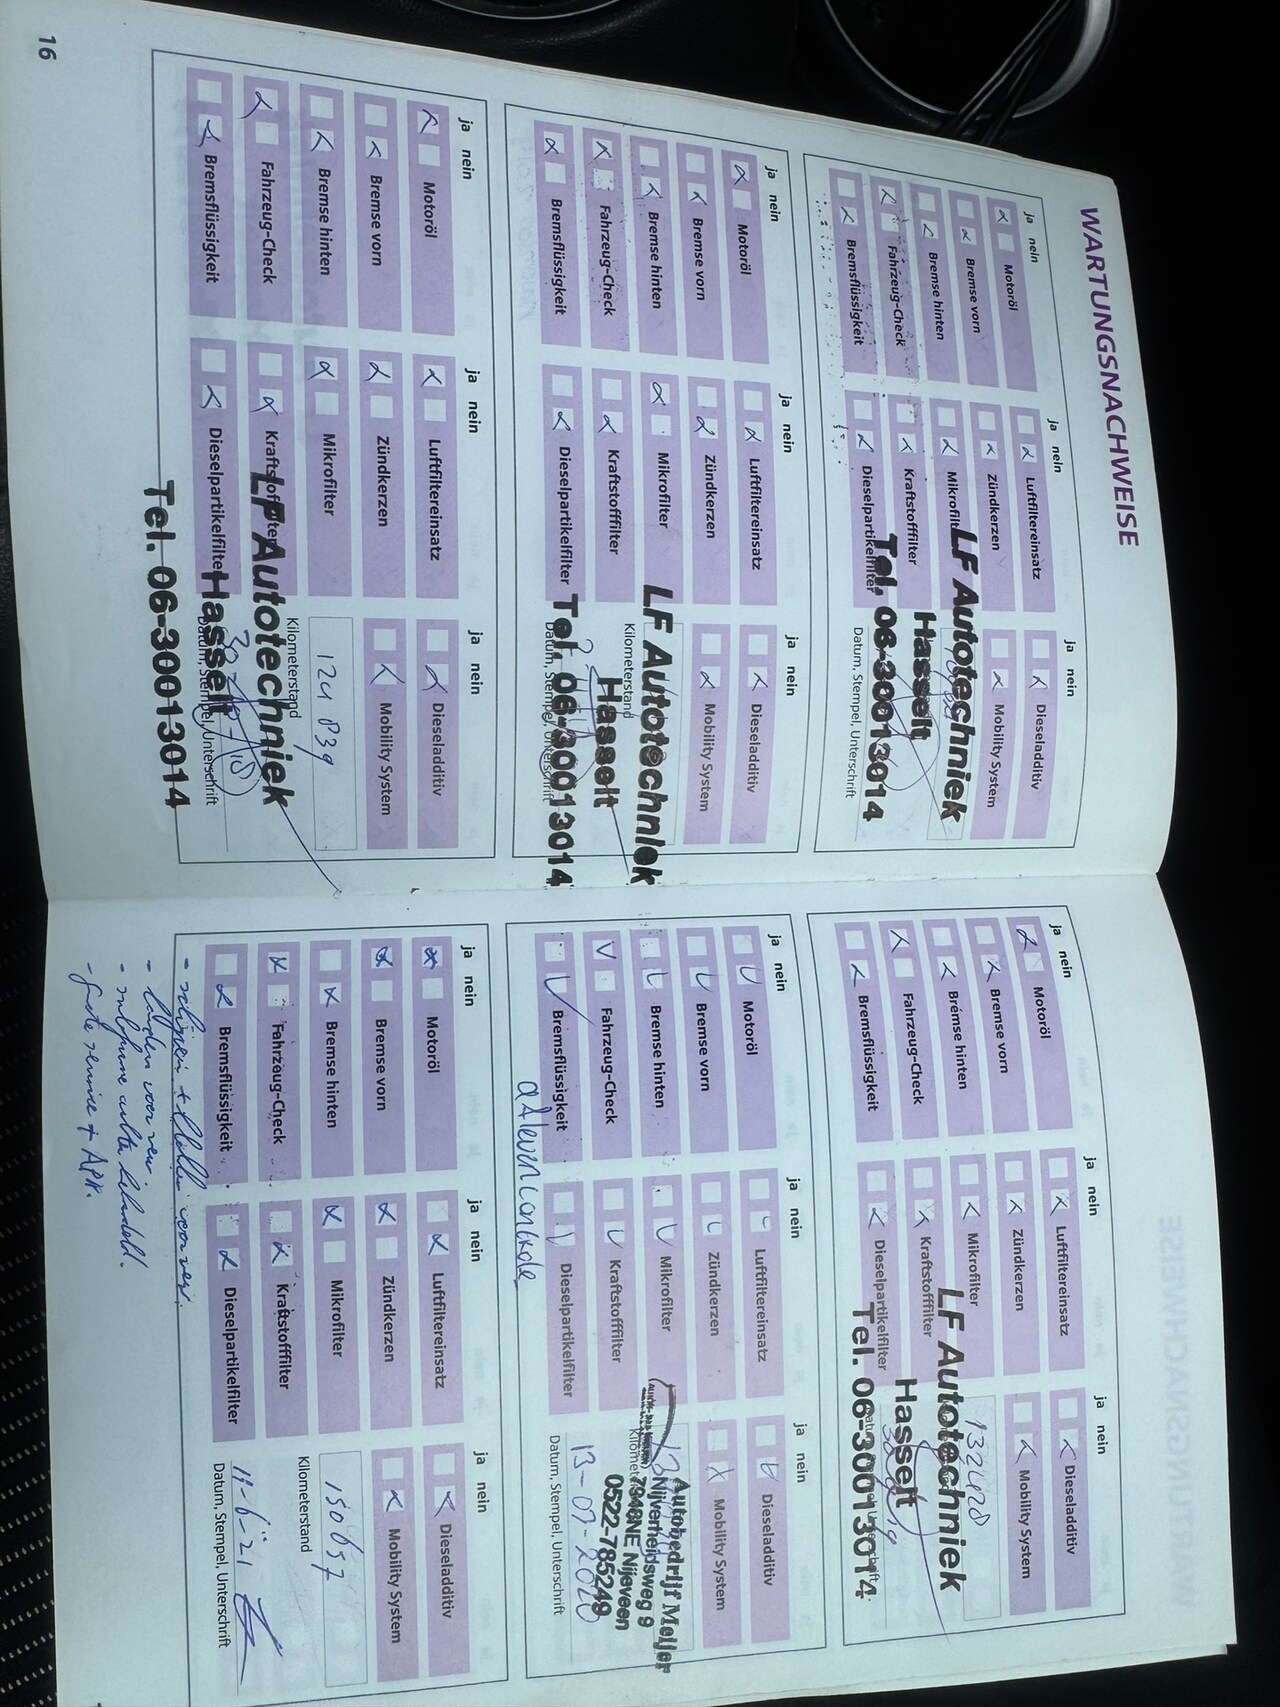 WARTUNGSNACHWEISE
ja nein
Motoröl
Bremse vorn
Bremse hinten
Fahrzeug-Check
Bremsflüssigkeit
ja nein
Luftfiltereinsatz
Zündkerzen
Mikrofilter
Kraftstofffilter
Dieselpartikelfilter
ja nein
Dieseladditiv
Mobility System
Datum, Stempel, Unterschrift
LF Autotechniek
Hasselt
Tel. 06-30013014
ja nein
Motoröl
Bremse vorn
Bremse hinten
Fahrzeug-Check
Bremsflüssigkeit
ja nein
Luftfiltereinsatz
Zündkerzen
Mikrofilter
Kraftstofffilter
Dieselpartikelfilter
ja nein
Dieseladditiv
Mobility System
Kilometerstand
Datum, Stempel, Unterschrift
LF Autotechniek
Hasselt
Tel. 06-30013014
ja nein
Motoröl
Bremse vorn
Bremse hinten
Fahrzeug-Check
Bremsflüssigkeit
ja nein
Luftfiltereinsatz
Zündkerzen
Mikrofilter
Kraftstofffilter
Dieselpartikelfilter
ja nein
Dieseladditiv
Mobility System
Kilometerstand
124 839
Datum, Stempel, Unterschrift
LF Autotechniek
Hasselt
Tel. 06-30013014
16
ja nein
Motoröl
Bremse vorn
Bremse hinten
Fahrzeug-Check
Bremsflüssigkeit
ja nein
Luftfiltereinsatz
Zündkerzen
Mikrofilter
Kraftstofffilter
Dieselpartikelfilter
ja nein
Dieseladditiv
Mobility System
132428
LF Autotechniek
Hasselt
Tel. 06-30013014
ja nein
Motoröl
Bremse vorn
Bremse hinten
Fahrzeug-Check
Bremsflüssigkeit
ja nein
Luftfiltereinsatz
Zündkerzen
Mikrofilter
Kraftstofffilter
Dieselpartikelfilter
ja nein
Dieseladditiv
Mobility System
Autobedrijf Meijer
Nijverheidsweg 9
7948NE Nijeveen
0522-785249
13-07-2020
Datum, Stempel, Unterschrift
ja nein
Motoröl
Bremse vorn
Bremse hinten
Fahrzeug-Check
Bremsflüssigkeit
ja nein
Luftfiltereinsatz
Zündkerzen
Mikrofilter
Kraftstofffilter
Dieselpartikelfilter
ja nein
Dieseladditiv
Mobility System
Kilometerstand
150657
11-6-21
Datum, Stempel, Unterschrift
- banden voor ver.
- grote + APK.